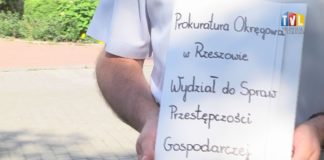 TVL
Prokuratura Okręgowa
w Rzeszowie
Wydział do Spraw
Przestępczości
Gospodarczej